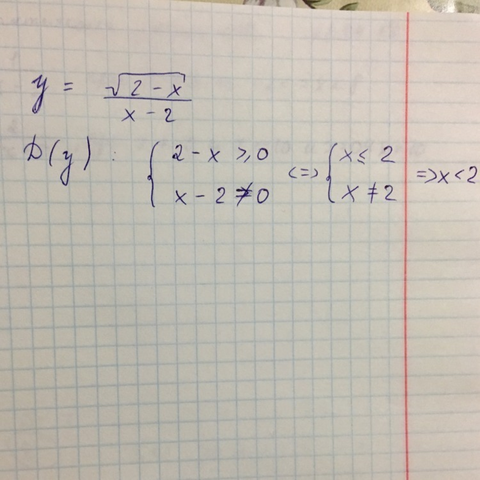 y = √(2 - x) / (x - 2)
D(y) : { 2 - x ≥ 0 <=> { x ≤ 2
x - 2 ≠ 0 x ≠ 2 => x < 2